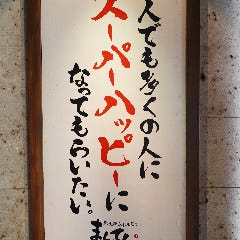 人でも多くの人に
スーパーハッピーに
なってもらいたい。